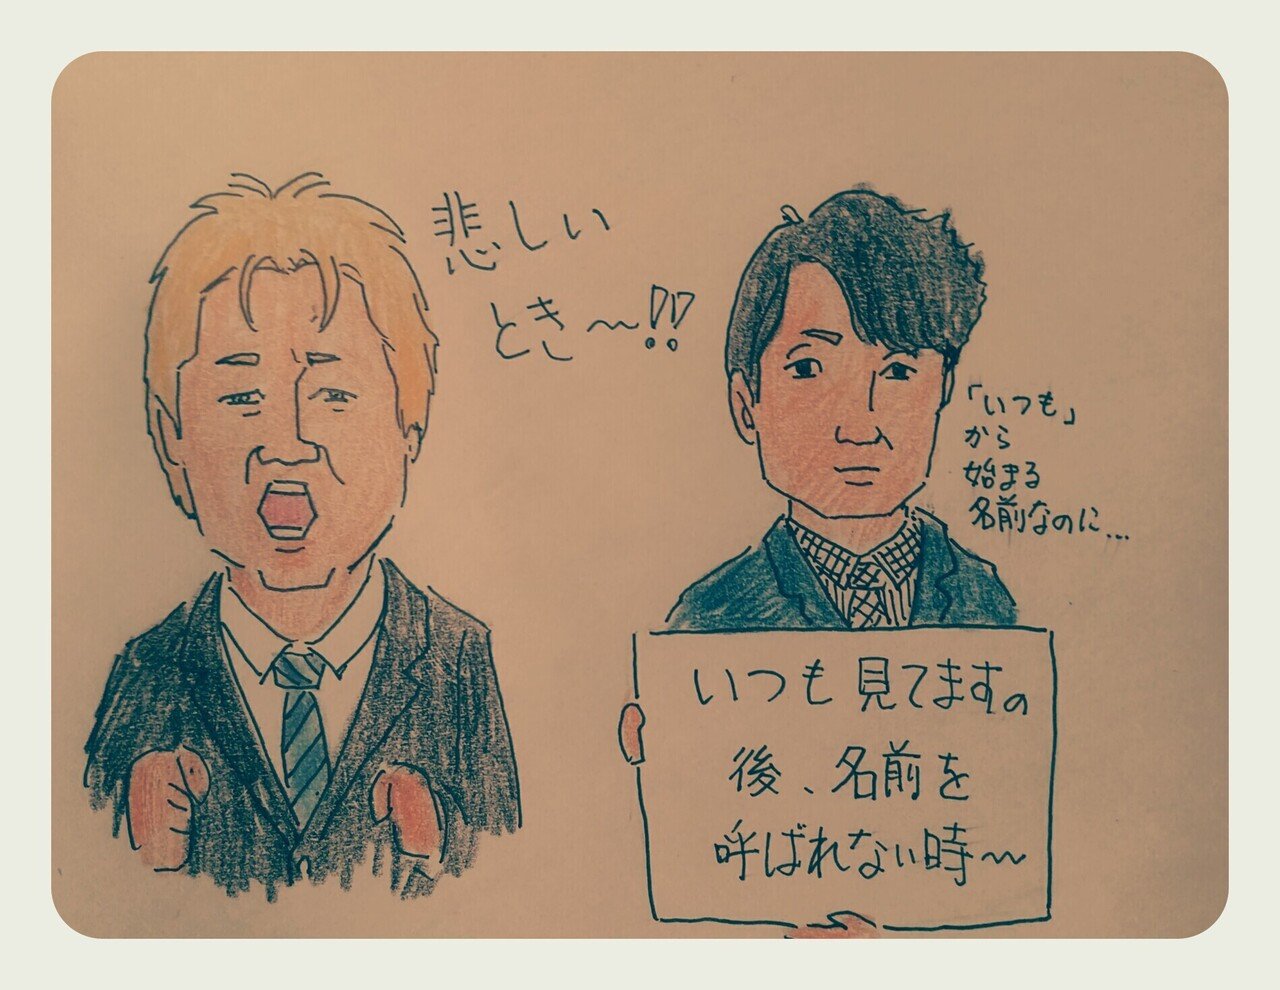 悲しい
とき〜!!
「いつも」
から
始まる
名前なのに...
いつも見てますの
後、名前を
呼ばれない時〜